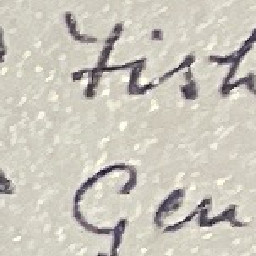 Fish
Gen